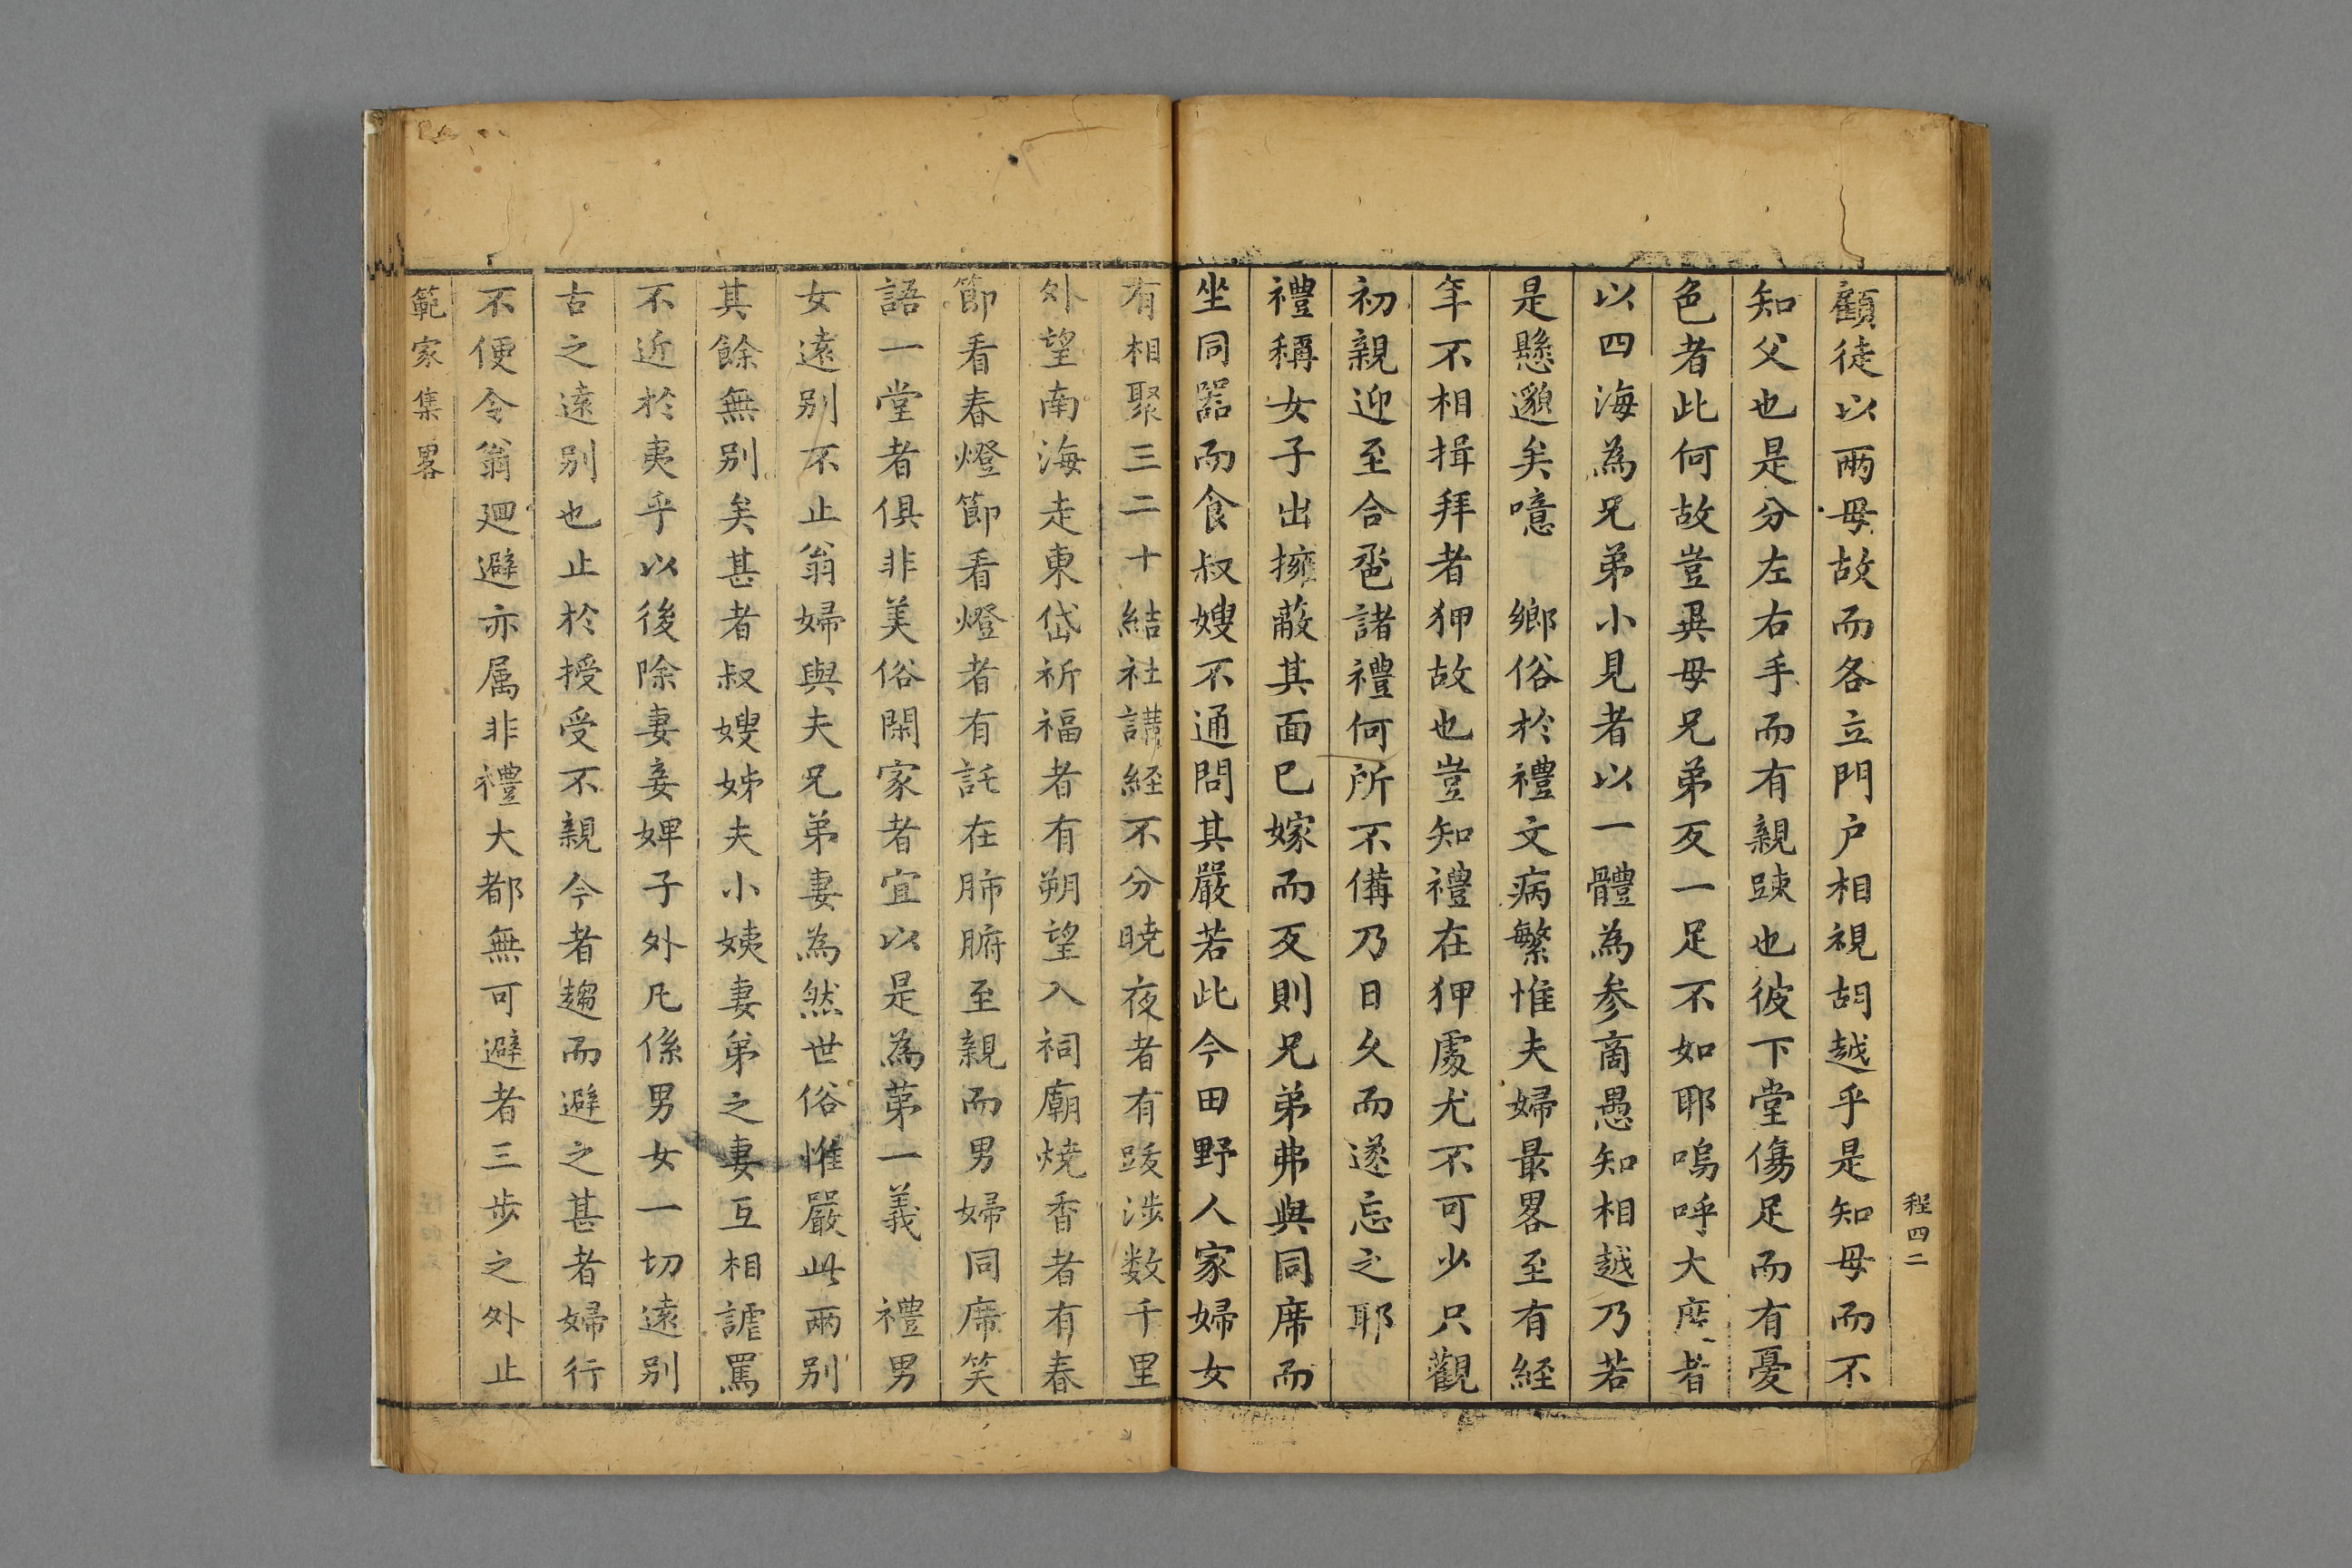 程四二
顧徒以兩母故而各立門户相視胡越乎是知母而不
知父也是分左右手而有親踈也彼下堂傷足而有憂
色者此何故豈異母兄弟反一足不如耶嗚呼大庶者
以四海為兄弟小見者以一體為参商愚知相越乃若
是懸邈矣噫　鄉俗於禮文病繁惟夫婦最畧至有経
年不相揖拜者狎故也豈知禮在狎處尤不可少只觀
初親迎至合卺諸禮何所不備乃日久而遂忘之耶
禮稱女子出擁蔽其面已嫁而反則兄弟弗與同席而
坐同噐而食叔嫂不通問其嚴若此今田野人家婦女
有相聚三二十結社講経不分曉夜者有跋涉数千里
外望南海走東岱祈福者有朔望入祠廟燒香者有春
節看春燈節看燈者有託在肺腑至親而男婦同席笑
語一堂者俱非美俗閑家者宜以是為苐一義　禮男
女遠别不止翁婦與夫兄弟妻為然世俗惟嚴此兩别
其餘無别矣甚者叔嫂姊夫小姨妻弟之妻互相謔罵
不近於夷乎以後除妻妾婢子外凡係男女一切遠别
古之遠别也止於授受不親今者趨而避之甚者婦行
不便令翁廻避亦属非禮大都無可避者三步之外止
範家集畧